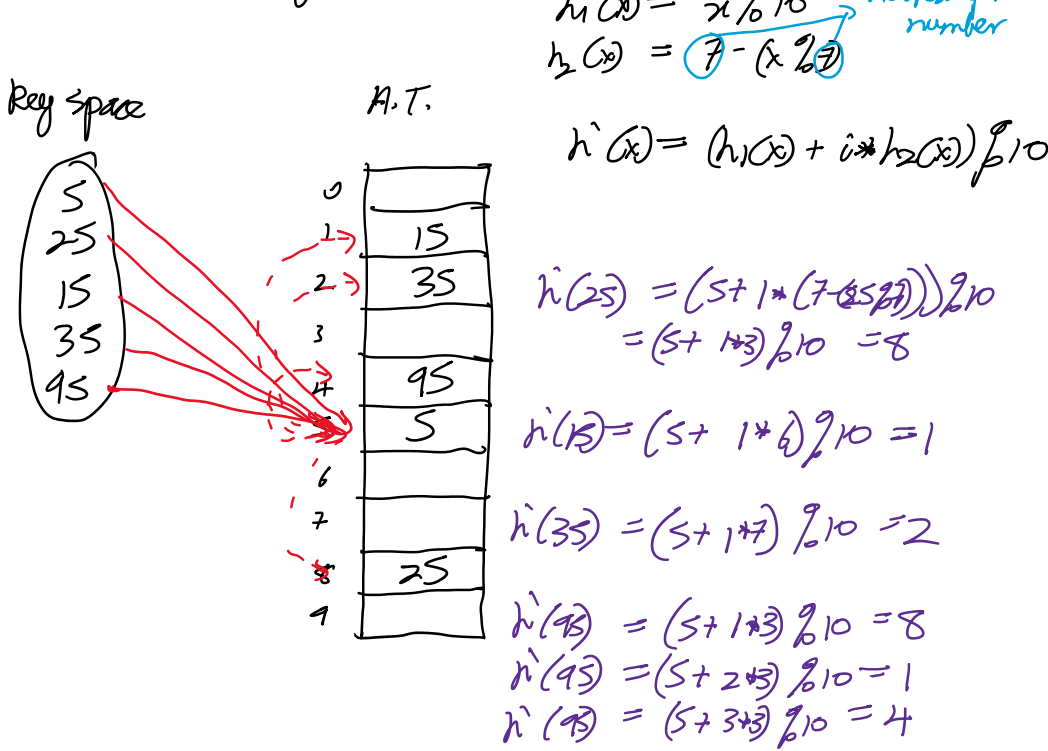 h₁(x) = x % 10
number
h₂(x) = 7 - (x % 7)
Key space
H.T.
h`(x) = (h₁(x) + i * h₂(x)) % 10
5
25
15
35
95
0
1 15
2 35
3
4 95
5
6
7
8 25
9
h`(25) = (5 + 1 * (7-(25%7))) % 10
= (5 + 1*3) % 10 = 8
h`(15) = (5 + 1 * 6) % 10 = 1
h`(35) = (5 + 1*7) % 10 = 2
h`(95) = (5 + 1*3) % 10 = 8
h`(95) = (5 + 2*3) % 10 = 1
h`(95) = (5 + 3*3) % 10 = 4